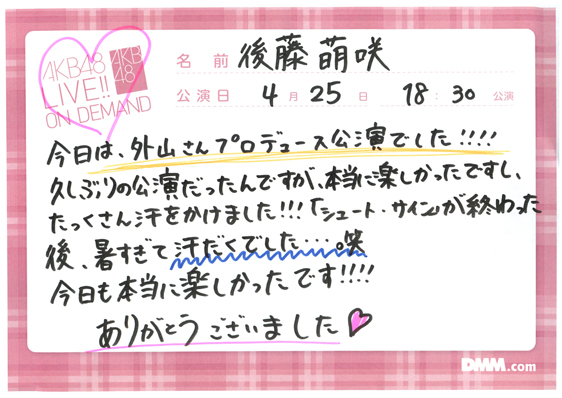 AKB48
LIVE!!
ON DEMAND
AKB
48
名前 後藤 萌咲
公演日 4月25日 18:30公演
今日は、外山さんプロデュース公演でした!!!!
久しぶりの公演だったんですが、本当に楽しかったですし、
たっくさん汗をかけました!!!「シュート・サイン」が終わった
後、暑すぎて汗だくでした…。笑
今日も本当に楽しかったです!!!!
ありがとうございました
DMM.com